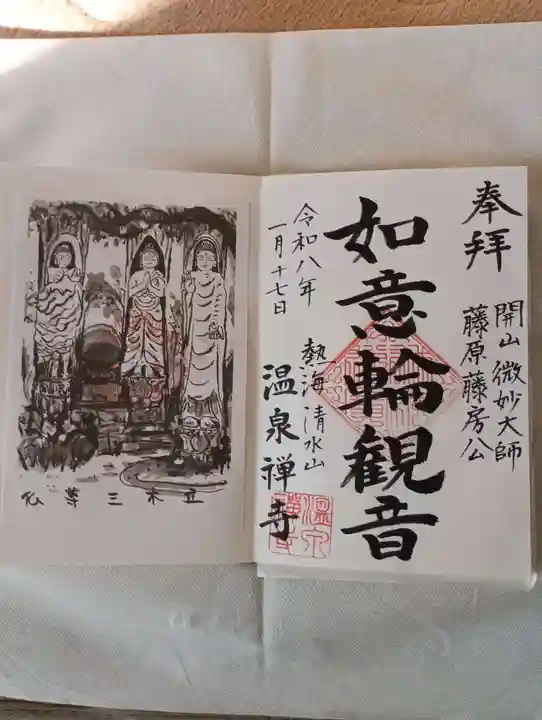 奉拝
開山 微妙大師
藤原藤房公
如意輪観音
熱海 清水山
温泉禅寺
令和八年
一月十七日
温泉
禅寺
立木三尊仏